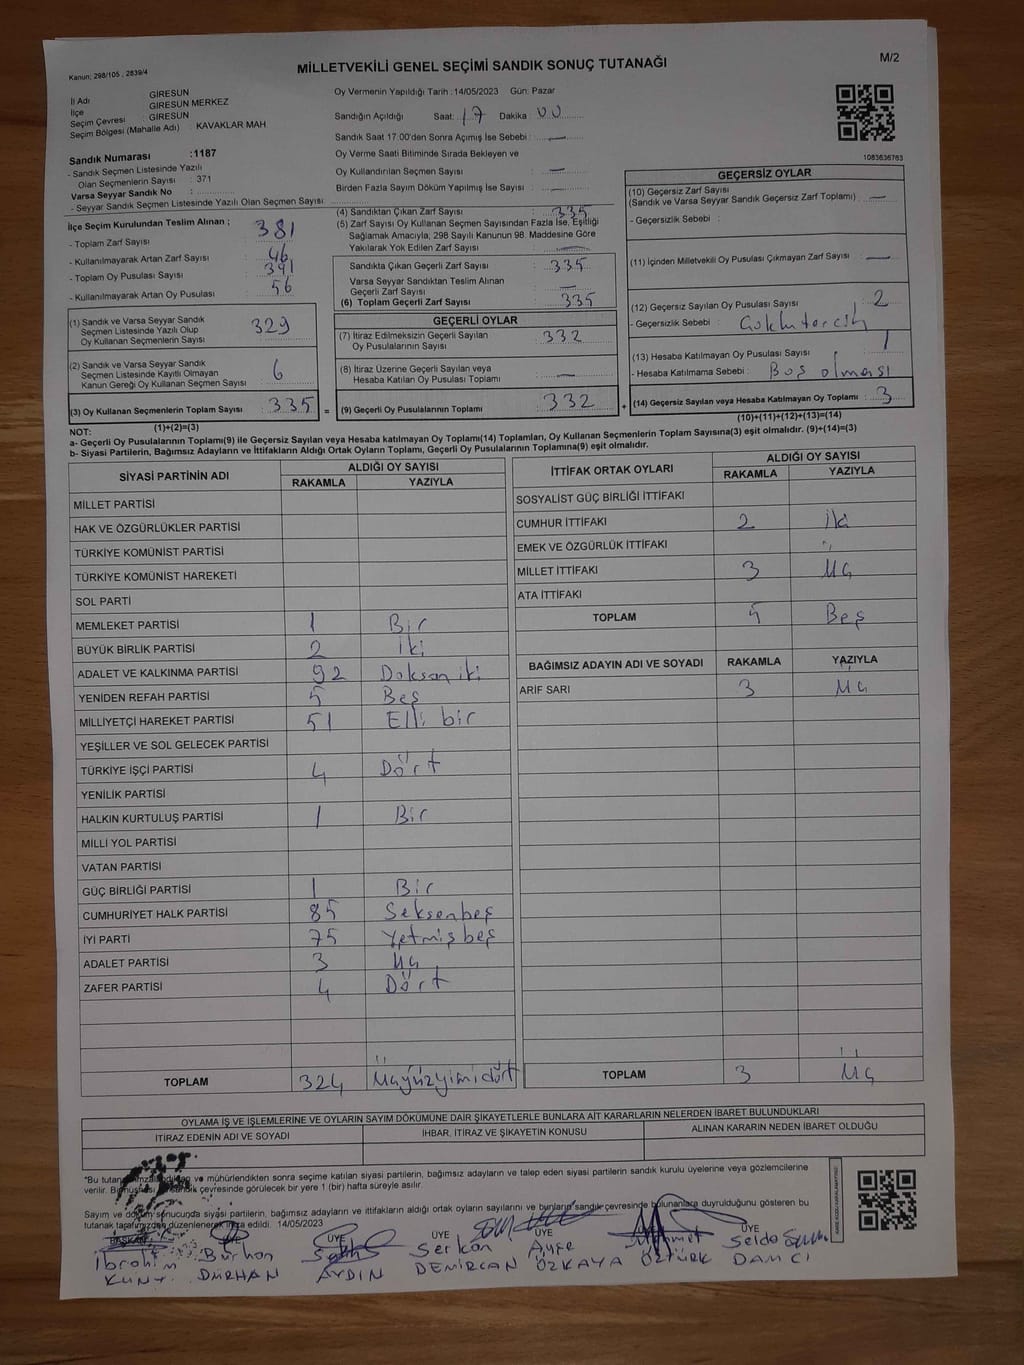 Kanun; 298/105 , 2839/4
MİLLETVEKİLİ GENEL SEÇİMİ SANDIK SONUÇ TUTANAĞI
M/2
İl Adı GİRESUN
İlçe GİRESUN MERKEZ
Seçim Çevresi : GİRESUN
Seçim Bölgesi (Mahalle Adı) : KAVAKLAR MAH
Sandık Numarası :1187
- Sandık Seçmen Listesinde Yazılı
Olan Seçmenlerin Sayısı : 371
Varsa Seyyar Sandık No :
- Seyyar Sandık Seçmen Listesinde Yazılı Olan Seçmen Sayısı
Oy Vermenin Yapıldığı Tarih : 14/05/2023 Gün: Pazar
Sandığın Açıldığı Saat: 17 Dakika 00
Sandık Saat 17:00'den Sonra Açımış İse Sebebi : —
Oy Verme Saati Bitiminde Sırada Bekleyen ve
Oy Kullandırılan Seçmen Sayısı : —
Birden Fazla Sayım Döküm Yapılmış İse Sayısı : —
1083636763
İlçe Seçim Kurulundan Teslim Alınan ;
- Toplam Zarf Sayısı : 381
- Kullanılmayarak Artan Zarf Sayısı : 46
- Toplam Oy Pusulası Sayısı : 391
- Kullanılmayarak Artan Oy Pusulası : 56
(1) Sandık ve Varsa Seyyar Sandık
Seçmen Listesinde Yazılı Olup
Oy Kullanan Seçmenlerin Sayısı : 329
(2) Sandık ve Varsa Seyyar Sandık
Seçmen Listesinde Kayıtlı Olmayan
Kanun Gereği Oy Kullanan Seçmen Sayısı : 6
(3) Oy Kullanan Seçmenlerin Toplam Sayısı : 335 =
(1)+(2)=(3)
(4) Sandıktan Çıkan Zarf Sayısı : 335
(5) Zarf Sayısı Oy Kullanan Seçmen Sayısından Fazla İse, Eşitliği
Sağlamak Amacıyla, 298 Sayılı Kanunun 98. Maddesine Göre
Yakılarak Yok Edilen Zarf Sayısı : —
Sandıkta Çıkan Geçerli Zarf Sayısı : 335
Varsa Seyyar Sandıktan Teslim Alınan
Geçerli Zarf Sayısı : —
(6) Toplam Geçerli Zarf Sayısı : 335
GEÇERLİ OYLAR
(7) İtiraz Edilmeksizin Geçerli Sayılan
Oy Pusulalarının Sayısı : 332
(8) İtiraz Üzerine Geçerli Sayılan veya
Hesaba Katılan Oy Pusulası Toplamı : —
(9) Geçerli Oy Pusulalarının Toplamı : 332 +
GEÇERSİZ OYLAR
(10) Geçersiz Zarf Sayısı
(Sandık ve Varsa Seyyar Sandık Geçersiz Zarf Toplamı) : —
- Geçersizlik Sebebi :
(11) İçinden Milletvekili Oy Pusulası Çıkmayan Zarf Sayısı : —
(12) Geçersiz Sayılan Oy Pusulası Sayısı : 2
- Geçersizlik Sebebi :
(13) Hesaba Katılmayan Oy Pusulası Sayısı : 1
- Hesaba Katılmama Sebebi : Boş olması
(14) Geçersiz Sayılan veya Hesaba Katılmayan Oy Toplamı : 3
(10)+(11)+(12)+(13)=(14)
NOT:
a- Geçerli Oy Pusulalarının Toplamı(9) ile Geçersiz Sayılan veya Hesaba katılmayan Oy Toplamı(14) Toplamları, Oy Kullanan Seçmenlerin Toplam Sayısına(3) eşit olmalıdır. (9)+(14)=(3)
b- Siyasi Partilerin, Bağımsız Adayların ve İttifakların Aldığı Ortak Oyların Toplamı, Geçerli Oy Pusulalarının Toplamına(9) eşit olmalıdır.
SİYASİ PARTİNİN ADI ALDIĞI OY SAYISI
RAKAMLA YAZIYLA
MİLLET PARTİSİ
HAK VE ÖZGÜRLÜKLER PARTİSİ
TÜRKİYE KOMÜNİST PARTİSİ
TÜRKİYE KOMÜNİST HAREKETİ
SOL PARTİ
MEMLEKET PARTİSİ 1 Bir
BÜYÜK BİRLİK PARTİSİ 2 iki
ADALET VE KALKINMA PARTİSİ 92 Doksan iki
YENİDEN REFAH PARTİSİ 5 Beş
MİLLİYETÇİ HAREKET PARTİSİ 51 Elli bir
YEŞİLLER VE SOL GELECEK PARTİSİ
TÜRKİYE İŞÇİ PARTİSİ 4 Dört
YENİLİK PARTİSİ
HALKIN KURTULUŞ PARTİSİ 1 Bir
MİLLİ YOL PARTİSİ
VATAN PARTİSİ
GÜÇ BİRLİĞİ PARTİSİ 1 Bir
CUMHURİYET HALK PARTİSİ 85 Seksenbeş
İYİ PARTİ 75 Yetmişbeş
ADALET PARTİSİ 3 Üç
ZAFER PARTİSİ 4 Dört
TOPLAM 324 Üçyüzyimidört
İTTİFAK ORTAK OYLARI ALDIĞI OY SAYISI
RAKAMLA YAZIYLA
SOSYALİST GÜÇ BİRLİĞİ İTTİFAKI
CUMHUR İTTİFAKI 2 iki
EMEK VE ÖZGÜRLÜK İTTİFAKI
MİLLET İTTİFAKI 3 Üç
ATA İTTİFAKI
TOPLAM 5 Beş
BAĞIMSIZ ADAYIN ADI VE SOYADI RAKAMLA YAZIYLA
ARİF SARI 3 Üç
TOPLAM 3 Üç
OYLAMA İŞ VE İŞLEMLERİNE VE OYLARIN SAYIM DÖKÜMÜNE DAİR ŞİKAYETLERLE BUNLARA AİT KARARLARIN NELERDEN İBARET BULUNDUKLARI
İTİRAZ EDENİN ADI VE SOYADI İHBAR, İTİRAZ VE ŞİKAYETİN KONUSU ALINAN KARARIN NEDEN İBARET OLDUĞU
"Bu tutanak ve mühürlendikten sonra seçime katılan siyasi partilerin, bağımsız adayların ve talep eden siyasi partilerin sandık kurulu üyelerine veya gözlemcilerine
verilir. Bir çevresinde görülecek bir yere 1 (bir) hafta süreyle asılır.
Sayım ve döküm sonucunda siyasi partilerin, bağımsız adayların ve ittifakların aldığı ortak oyların sayısını ve bunların sandık çevresinde bulunanlara duyurulduğunu gösteren bu
tutanak tarafımızdan düzenlenerek imza edildi. 14/05/2023
BAŞKAN ÜYE ÜYE ÜYE ÜYE ÜYE
İbrahim Burhan Serkan Ayşe Selda
DURHAN AYDIN DEMİRCAN ÖZKAYA ÖZTÜRK DAMCI